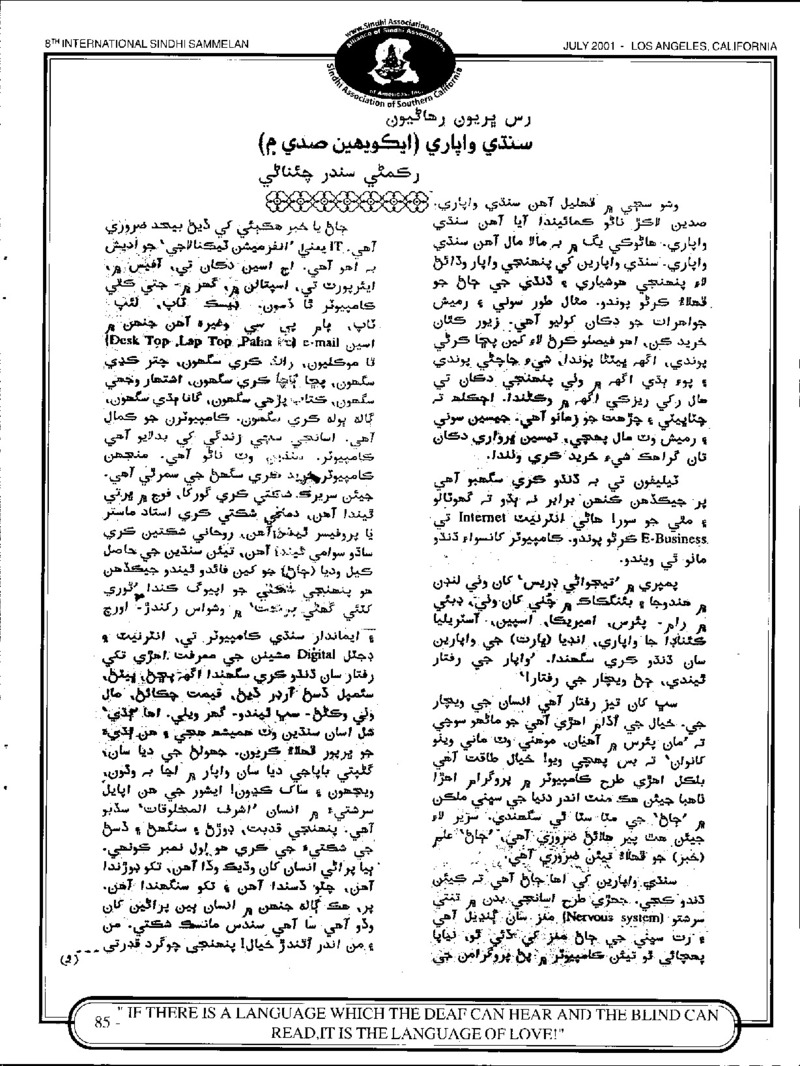 8TH INTERNATIONAL SINDHI SAMMELAN
JULY 2001 - LOS ANGELES, CALIFORNIA
www.Sindhi Association.org
Alliance of Sindhi Associations
of Americas, Inc.
Sindhi Association of Southern California
رس ڀريون رهاڻيون
سنڌي واپاري (ايڪويهين صدي ۾)
رڪمڻي سندر چئناڻي
وشو سڄي ۾ ڦهليل آهن سنڌي واپاري.
صدين لاڪر ناڻو ڪمائيندا آيا آهن سنڌي
واپاري. هاڻوڪي يگ ۾ به مالا مال آهن سنڌي
واپاري. سنڌي واپارين کي پنهنجي واپار وڌائڻ
لاءِ پنهنجي هوشياري ۽ ڌنڌي جي ڄاڻ جو
ڦهلاءُ ڪرڻو پوندو. مثال طور سوني ۽ رميش
جواهرات جو دڪان کوليو آهي. زيور ڪٿان
خريد ڪن، اهو فيصلو ڪرڻ لاءِ کين پڇا ڪرڻي
پوندي، اگهه ڀيٽڻا پوندا، شيءِ جاچڻي پوندي
۽ پوءِ ٻڌي اگهه ۾ وٺي پنهنجي دڪان تي
مال رکي ريزڪي اگهه ۾ وڪڻندا. اڄڪلهه ته
چٽاڀيٽي ۽ چڙهت جو زمانو آهي. جيسين سوني
۽ رميش وٽ مال پهچي، تيسين ڀرواري دڪان
تان گراهڪ شيءِ خريد ڪري وٺندا.
ٽيليفون تي به ڌنڌو ڪري سگهبو آهي
پر جيڪڏهن ڪنهن برابر نه ٻڌو ته گهوٽالو
۽ مٿي جو سور! هاڻي انٽرنيٽ Internet تي
E-Business ڪرڻو پوندو. ڪامپيوٽر کانسواءِ ڌنڌو
ماٺو ٿي ويندو.
بمبئي ۾ 'ٽيڄواڻي ڊريس' کان وٺي لنڊن
۾ هندوجا ۽ بئنگڪاڪ ۾ چُني کان وٺي، دبئي
۾ رام- پئرس، امريڪا، اسپين، آسٽريليا
ڪئناڊا جا واپاري، انڊيا (ڀارت) جي واپارين
سان ڌنڌو ڪري سگهندا. 'واپار جي رفتار
ٿيندي، ڄڻ ويچار جي رفتار!'
سڀ کان تيز رفتار آهي انسان جي ويچار
جي. خيال جي اڏام اهڙي آهي جو ماڻهو سوچي
ته 'مان پئرس ۾ آهيان، موهني وٽ ماني وٺيو
کانوان' ته بس پهچي ويو! خيال طاقت آهي
بلڪل اهڙي طرح ڪامپيوٽر ۾ پروگرام اهڙا
ٺاهبا جيئن هڪ منٽ اندر دنيا جي سڀني ملڪن
۾ 'ڄاڻ' جي مٽا سٽا ٿي سگهندي. سرير لاءِ
جيئن هٿ پير هلائڻ ضروري آهي، 'ڄاڻ' علم
(خبر) جو ڦهلاءُ تيئن ضروري آهي.
سنڌي واپارين کي اها ڄاڻ آهي ته ڪيئن
ڌنڌو ڪجي. جهڙي طرح اسانجي بدن ۾ تنتي
سرشتو (Nervous system) مغز سان ڳنڍيل آهي
۽ رت سڀني جي ڄاڻ مغز کي ڏئي ٿو، نياپا
پهچائي ٿو تيئن ڪامپيوٽر ۾ پڻ پروگرامن جي
ڄاڻ يا خبر هڪٻئي کي ڏيڻ بيحد ضروري
آهي. IT يعني 'انفرميشن ٽيڪنالاجي' جو اُديش
به اهو آهي. اڄ اسين دڪان تي، آفيس ۾،
ايئرپورٽ تي، اسپتالن ۾، گهر ۾- جتي ڪٿي
ڪامپيوٽر ٿا ڏسون. ڊيسڪ ٽاپ، لئپ
ٽاپ، پام پي سي وغيره آهن جنهن ۾
اسين e-mail (Desk Top ,Lap Top ,Palm Pc)
ٿا موڪليون، راند ڪري سگهون، چتر ڪڍي
سگهون، پڇا ڳاڇا ڪري سگهون، اشتهار وجهي
سگهون، ڪتاب پڙهي سگهون، گانا ٻڌي سگهون،
ڳالهه ٻولهه ڪري سگهون. ڪامپيوٽرن جو ڪمال
آهي. اسانجي سڄي زندگي کي بدلايو آهي
ڪامپيوٽر. سنڌين وٽ ناڻو آهي. منجهن
ڪامپيوٽر خريد ڪري سگهڻ جي سمرٿي آهي.
جيئن سريرڪ شڪتي ڪري گورکا، فوج ۾ ڀرتي
ٿيندا آهن، دماغي شڪتي ڪري استاد ماستر
يا پروفيسر ٿيندا آهن، روحاني شڪتين ڪري
ساڌو سوامي ٿيندا آهن، تيئن سنڌين جي حاصل
ڪيل وديا (ڄاڻ) جو کين فائدو ٿيندو جيڪڏهن
هو پنهنجي شڪتي جو اُپيوگ ڪندا 'ٿوري
کٽئي گهڻي برڪت' ۾ وشواس رکندڙ- اورچ
۽ ايماندار سنڌي ڪامپيوٽر تي، انٽرنيٽ ۽
ڊجٽل Digital مشينن جي معرفت اهڙي تکي
رفتار سان ڌنڌو ڪري سگهندا اگهه پڇڻ، ڀيٽڻ،
سئمپل ڏسڻ آرڊر ڏيڻ، قيمت چڪائڻ، مال
وٺي وڪڻڻ- سڀ ٿيندو- گهر ويٺي. اها 'ٻڌي'
شل اسان سنڌين وٽ هميشهه هجي ۽ هن ٻڌيءَ
جو ڀرپور ڦهلاءُ ڪريون. جهولڻ جي ديا سان،
گڻپتي باپاجي ديا سان واپار ۾ اڃا به وڌون،
ويجهون ۽ ساک ڪڍون! ايشور جي هن اُپايل
سرشتيءَ ۾ انسان 'اشرف المخلوقات' سڏبو
آهي. پنهنجي قدبت، ڊوڙڻ ۽ سنگهڻ ۽ ڏسڻ
جي شڪتيءَ جي ڪري هو اول نمبر ڪونهي.
ٻيا پراڻي انسان کان وڌيڪ وڏا آهن، تکو ڊوڙندا
آهن، چٽو ڏسندا آهن ۽ تکو سنگهندا آهن.
پر، هڪ ڳالهه جنهن ۾ انسان ٻين پراڻين کان
وڏو آهي سا آهي سندس مانسڪ شڪتي. من
۽ من اندر اُٿندڙ خيال! پنهنجي چوگرد قدرتي
85 -
" IF THERE IS A LANGUAGE WHICH THE DEAF CAN HEAR AND THE BLIND CAN
READ,IT IS THE LANGUAGE OF LOVE!"